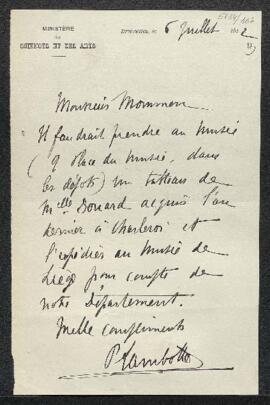 MINISTÈRE
DES
SCIENCES ET DES ARTS
Bruxelles, 6 Juillet 1912
Monsieur Mommen
Il faudrait prendre au Musée
(9 place du Musée, dans
les dépôts) un tableau de
Melle Donard acquis l'an
dernier à Charleroi et
l'expédier au Musée de
Liège pour compte de
notre Département.
Mille compliments
P Lambotte